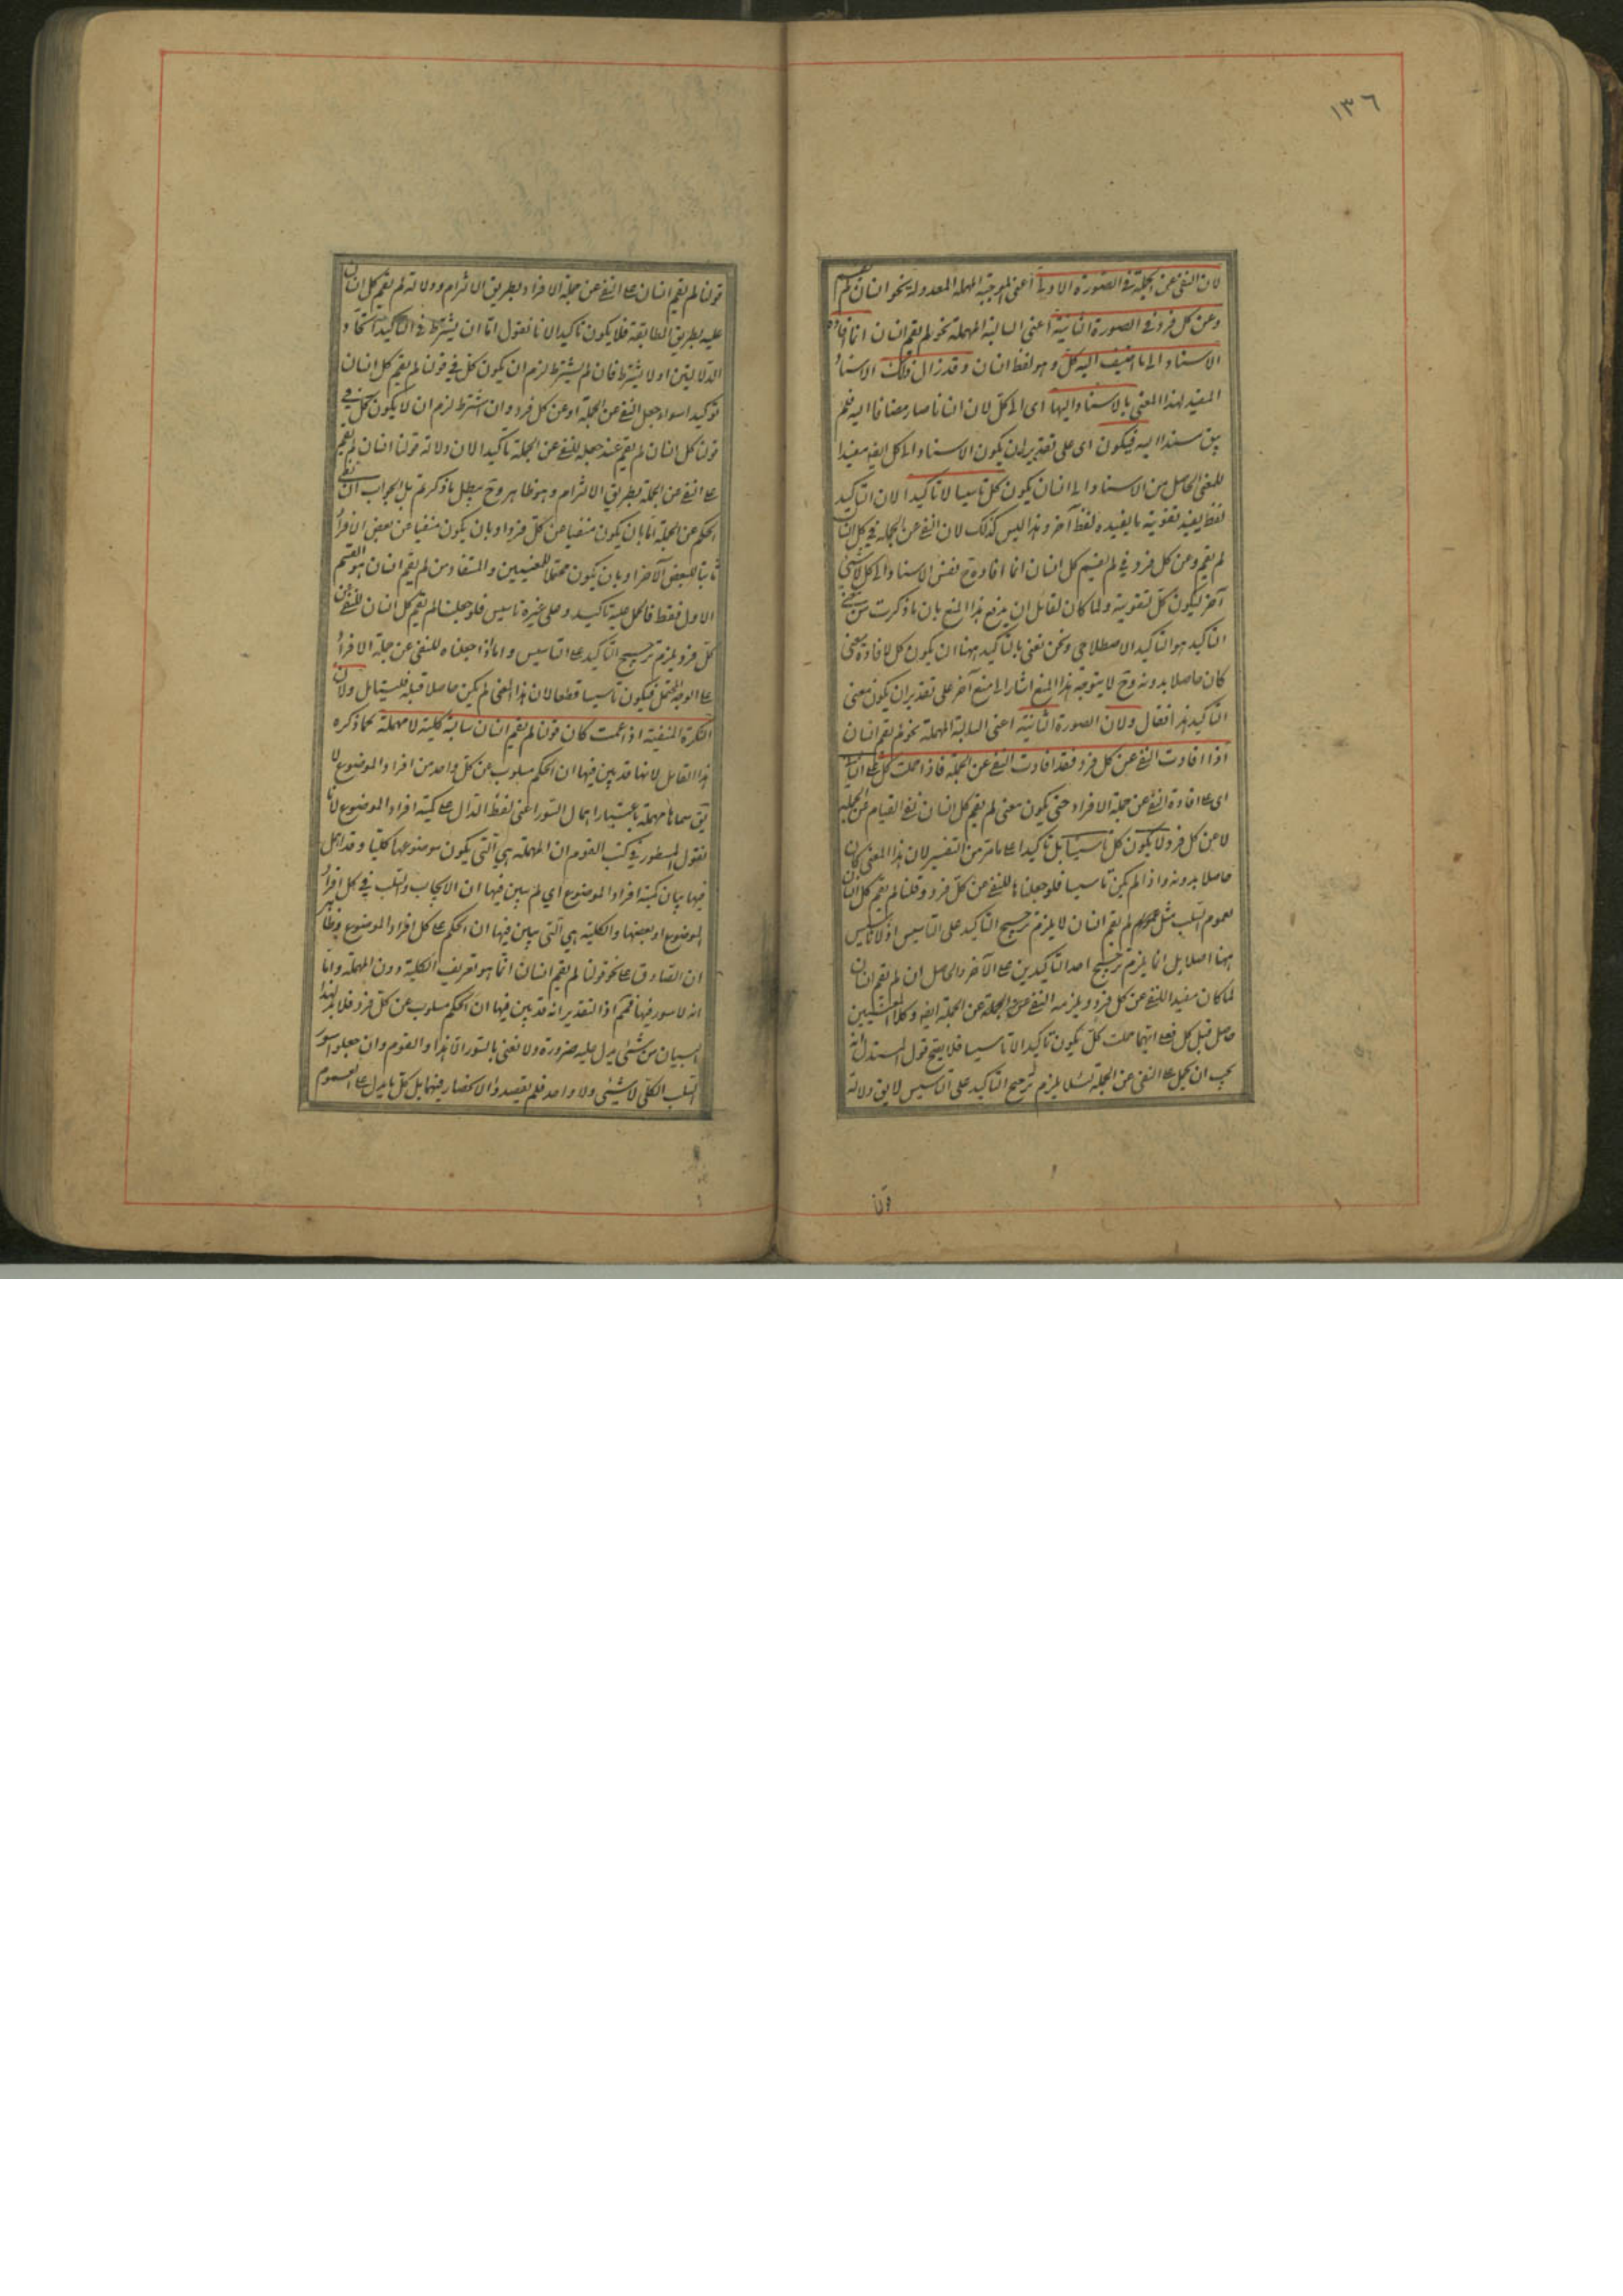 ١٣٦
لان النفى عن الجملة فى الصورة الاولى اعنى الموجبة المهملة المعدولة نحو انسان لم يقم
وعن كل فرد فى الصورة الثانية اعنى السالبة المهملة نحو لم يقم انسان انما افاده
الاسناد الى ما اضيف اليه كل وهو لفظ انسان وقد زال ذلك الاسناد
المفيد لهذا المعنى بالاسناد اليها اى الى كل لان انسانا صار مضافا اليه فلم
يبق مسندا اليه فيكون اى على تقدير ان يكون الاسناد الى كل ايضا مفيدا
للمعنى الحاصل من الاسناد الى انسان يكون كل تاسيسا لا تاكيدا لان التاكيد
لفظ يفيد تقوية ما يفيده لفظ آخر وهذا ليس كذلك لان النفى عن الجملة فى كل انسان
لم يقم وعن كل فرد فى لم يقم كل انسان انما افاده ح نفس الاسناد الى كل لا شئ
آخر ليكون كل لتقويته ولما كان لقائل ان يدفع هذا المنع بان ما ذكرت من معنى
التاكيد هو التاكيد الاصطلاحى ونحن نعنى بالتاكيد ههنا ان يكون كل لافادة معنى
كان حاصلا بدونه وح لا يتوجه هذا المنع اشار الى منع آخر على تقدير ان يكون معنى
التاكيد هذا فقال ولان الصورة الثانية اعنى السالبة المهملة نحو لم يقم انسان
اذا افادت النفى عن كل فرد فقد افادت النفى عن الجملة فاذا حملت كل على الثانى
اى على افادة النفى عن جملة الافراد حتى يكون معنى لم يقم كل انسان نفى القيام عن الجملة
لا عن كل فرد لا يكون كل تاسيسا بل تاكيدا على ما مر من التفسير لان هذا المعنى كان
حاصلا بدونه واذا لم يكن تاسيسا فلو جعلناها للنفى عن كل فرد وقلنا لم يقم كل انسان
لعموم السلب مثل لم يقم انسان لا يلزم ترجيح التاكيد على التاسيس اذ لا تاسيس
ههنا اصلا بل انما يلزم ترجيح احد التاكيدين على الآخر والحاصل ان لم يقم انسان
لما كان مفيدا للنفى عن كل فرد ويلزمه النفى عن الجملة ايضا وكلا المعنيين
حاصل قبل كل فعلى ايهما حملت كل يكون تاكيدا لا تاسيسا فلا يصح قول المستدل انه
يجب ان يحمل على النفى عن الجملة لئلا يلزم ترجيح التاكيد على التاسيس لا يق دلالة
قولنا
قولنا لم يقم انسان على النفى عن جملة الافراد بطريق الالتزام ودلالة لم يقم كل انسان
عليه بطريق المطابقة فلا يكون تاكيدا لانا نقول اما ان يشترط فى التاكيد اتحاد
الدلالتين او لا يشترط فان لم يشترط لزم ان يكون كل فى قولنا لم يقم كل انسان
توكيدا سواء جعل النفى عن الجملة او عن كل فرد وان اشترط لزم ان لا يكون كل فى
قولنا كل انسان لم يقم عند جعله للنفى عن الجملة تاكيدا لان دلالة قولنا انسان لم يقم
على النفى عن الجملة بطريق الالتزام وهو ظاهر وح يبطل ما ذكرتم بل الجواب ان نفى
الحكم عن الجملة اما بان يكون منفيا عن كل فرد او بان يكون منفيا عن بعض الافراد
ثابتا للبعض الآخر او بان يكون محتملا للمعنيين والمستفاد من لم يقم انسان هو القسم
الاول فقط فالحمل عليه تاكيد وعلى غيره تاسيس فلو جعلنا لم يقم كل انسان للنفى عن
كل فرد يلزم ترجيح التاكيد على التاسيس واما اذا جعلناه للنفى عن جملة الافراد
على الوجه المحتمل فيكون تاسيسا قطعا لان هذا المعنى لم يكن حاصلا قبله فليتامل ولان
النكرة المنفية اذا عمت كان قولنا لم يقم انسان سالبة كلية لا مهملة كما ذكره
هذا القائل لانها قد بين فيها ان الحكم مسلوب عن كل واحد من افراد الموضوع لا
يق سماها مهملة باعتبار اهمال السور اعنى لفظ الدال على كمية افراد الموضوع لانا
نقول المسطور فى كتب القوم ان المهملة هى التى يكون موضوعها كليا وقد اهمل
فيها بيان كمية افراد الموضوع اى لم يبين فيها ان الايجاب والسلب فى كل افراد
الموضوع او بعضها والكلية هى التى يبين فيها ان الحكم على كل افراد الموضوع وظاهر
ان الصادق على نحو قولنا لم يقم انسان انما هو تعريف الكلية دون المهملة واما
انه لا سور فيها فمم اذ التقدير انه قد بين فيها ان الحكم مسلوب عن كل فرد فلا بد لهذا
البيان من شئ يدل عليه ضرورة ولا نعنى بالسور الا هذا والقوم وان جعلوا سور
السلب الكلى لا شئ ولا واحد فلم يقصدوا الانحصار فيهما بل كل ما يدل على العموم